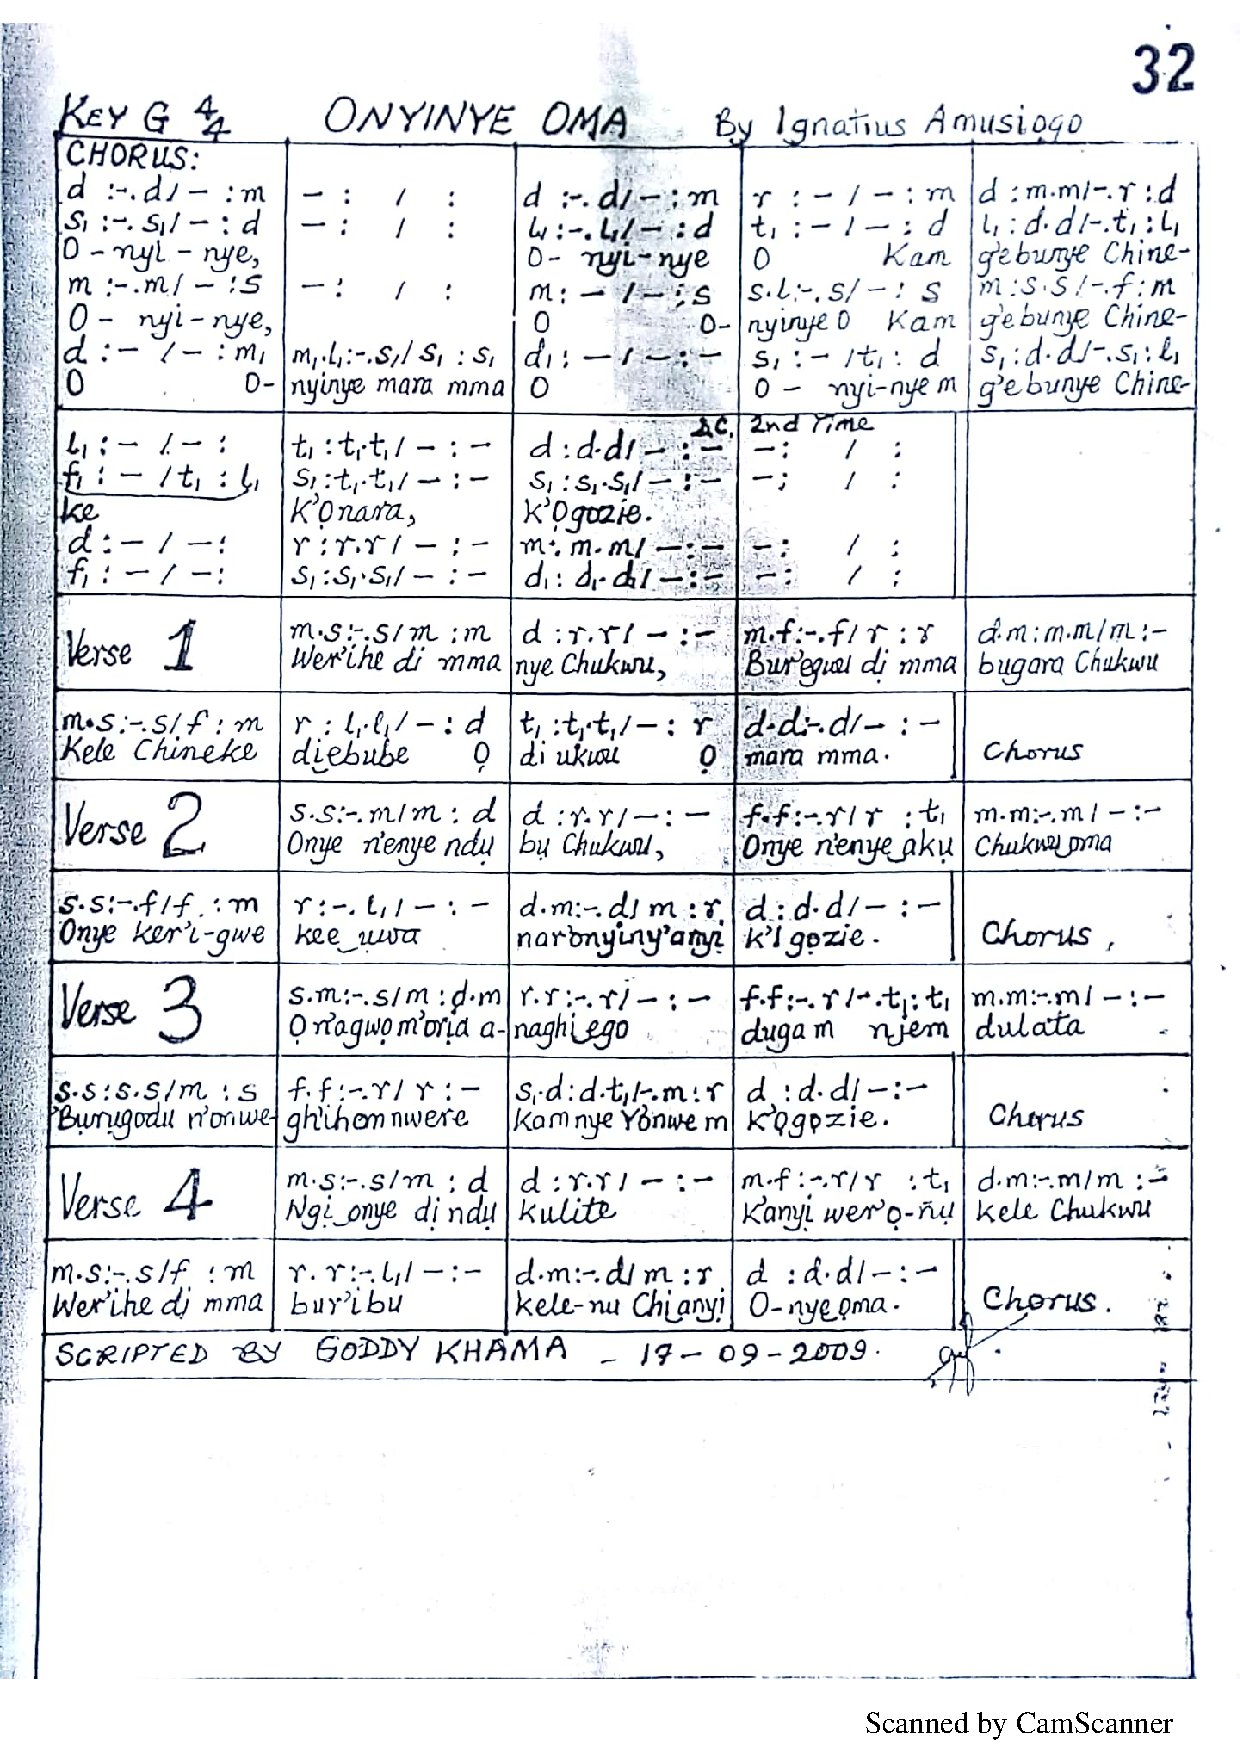 32
KEY G 4/4 ONYINYE OMA By Ignatius Amusiogo
CHORUS:
d :-. d / - : m | - : / : | d :-. d / - : m | r : - / - : m | d : m.m / -. r : d
s₁ :-. s₁ / - : d | - : / : | l₁ :-. l₁ / - : d | t₁ : - / - : d | l₁ : d.d / -. t₁ : l₁
O - nyi - nye, | | O - nyi-nye | O Kam | g'ebunye Chine-
m :-. m / - : s | - : / : | m : - / - : s | s.l :-. s / - : s | m : s.s / -. f : m
O - nyi-nye, | | O O- | nyinye O Kam | g'ebunye Chine-
d : - / - : m₁ | m₁.l₁ :-. s₁ / s₁ : s₁ | d₁ : - / - : - | s₁ : - / t₁ : d | s₁ : d.d / -. s₁ : l₁
O O- | nyinye mara mma | O | O - nyi-nye m | g'ebunye Chine-
D.C. 2nd Time
l₁ : - / - : | t₁ : t₁.t₁ / - : - | d : d.d / - : - | - : / :
f₁ : - / t₁ : l₁ | s₁ : t₁.t₁ / - : - | s₁ : s₁.s₁ / - : - | - ; / :
ke | K'Ọnara, | k'Ọgozie.
d : - / - : | r : r.r / - : - | m : m.m / - : - | - : / :
f₁ : - / - : | s₁ : s₁.s₁ / - : - | d₁ : d₁.d₁ / - : - | - : / :
Verse 1 | m.s :-. s / m : m | d : r.r / - : - | m.f :-. f / r : r | d.m : m.m / m : -
Wer'ihe di mma | nye Chukwu, | Bur'egwu dị mma | bugara Chukwu
m.s :-. s / f : m | r : l₁.l₁ / - : d | t₁ : t₁.t₁ / - : r | d.d :-. d / - : - | Chorus
Kele Chineke | diebube Ọ | di ukwu Ọ | mara mma.
Verse 2 | s.s :-. m / m : d | d : r.r / - : - | f.f :-. r / r : t₁ | m.m :-. m / - : -
Onye n'enye ndụ | bụ Chukwu, | Onye n'enye akụ | Chukwu oma
s.s :-. f / f : m | r :-. l₁ / - : - | d.m :-. d / m : r | d : d.d / - : - | Chorus,
Onye ker'i-gwe | kee uwa | nar'onyiny'anyị | k'Igozie.
Verse 3 | s.m :-. s / m : d.m | r.r :-. r / - : - | f.f :-. r / -. t₁ : t₁ | m.m :-. m / - : -
Ọ n'agwọ m'ọrịa a- | naghị ego | dugam njem | dulata
s.s : s.s / m : s | f.f :-. r / r : - | s₁.d : d.t₁ / -. m : r | d : d.d / - : - | Chorus
Burugodu n'onwe- | gh'ihom nwere | Kam nye Y'onwe m | k'ọgọzie.
Verse 4 | m.s :-. s / m : d | d : r.r / - : - | m.f :-. r / r : t₁ | d.m :-. m / m : -
Ngị onye dị ndụ | kulite | K'anyị wer'ọ-ñụ | kele Chukwu
m.s :-. s / f : m | r.r :-. l₁ / - : - | d.m :-. d / m : r | d : d.d / - : - | Chorus.
Wer'ihe dị mma | bur'ibu | kele-nu Chi anyị | O-nye oma.
SCRIPTED BY GODDY KHAMA - 17-09-2009.
Scanned by CamScanner